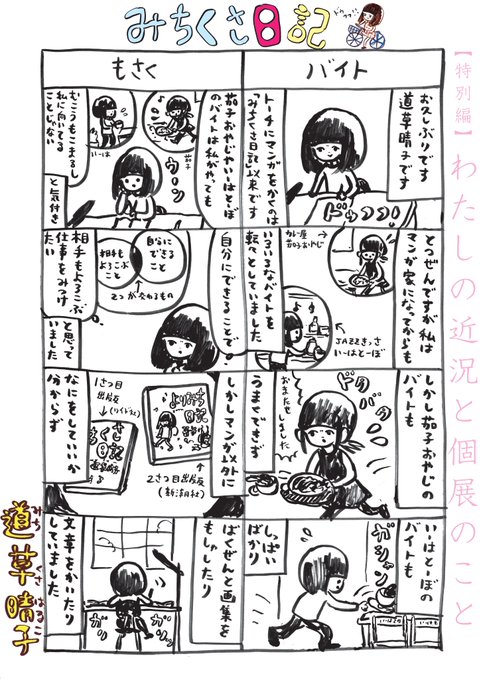 みちくさ日記
【特別編】わたしの近況と個展のこと
バイト
お久しぶりです
道草晴子です
トーチにマンガをかくのは
「みちくさ日記」以来です
とつぜんですが私は
マンガ家になってからも
カレー屋→
茄子おやじ
いろいろなバイトを
転々としていました
JAZZきっさ
いーはとーぼ
しかし茄子おやじの
バイトも
ドタバタ
おまたせしました
うまくできず
いーはとーぼの
バイトも
ガシャン
しっぱい
ばかり
もさく
茄子おやじやいーはとーぼ
のバイトは私がやっても
茄子
いーは
ウーン
むこうもこまるし
私に向いてる
ことじゃない
と気付き
自分にできることで
自分に
できる
こと
相手も
よろこぶ
こと
2つが交わるもの
相手もよろこぶ
仕事をみつけ
たい
と思って
いました
しかしマンガ以外に
よりみち
日記
2さつ目出版
(新潮社)
1さつ目
出版
(リイド社)
なにをしていいか
分からず
ばくぜんと画集を
もしゃしたり
ガリ
ガリッ
文章をかいたり
していました
道草晴子
みちくさはるこ